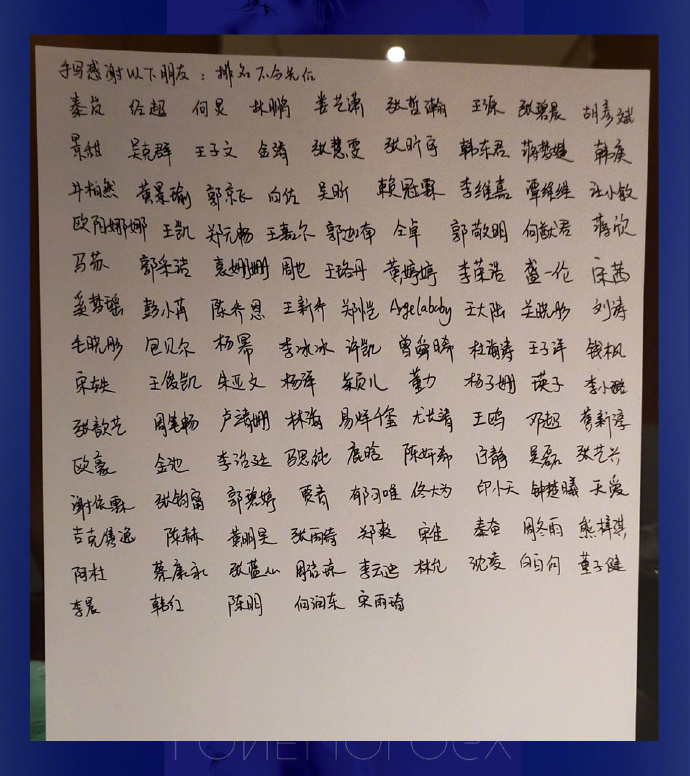 手写感谢以下朋友：排名不分先后
秦岚 任超 何炅 林鹏 娄艺潇 张哲瀚 王源 张碧晨 胡彦斌
景甜 吴克群 王子文 金靖 张慧雯 张昕宇 韩东君 蒋梦婕 韩庚
井柏然 黄景瑜 郭京飞 白敬 吴昕 赖冠霖 李维嘉 谭维维 汪小敏
欧阳娜娜 王凯 郑元畅 王嘉尔 郭麒麟 仝卓 郭敬明 何猷君 蒋欣
马苏 郭采洁 袁姗姗 周也 王珞丹 黄婷婷 李荣浩 盛一伦 宋茜
彭小苒 陈乔恩 王新乔 郑恺 Agelababy 王大陆 关晓彤 刘涛
毛晓彤 包贝尔 杨幂 李冰冰 许凯 曾舜晞 杜海涛 王子洋 钱枫
宋轶 王俊凯 朱亚文 杨洋 颖儿 董力 杨子姗 瑛子 李小璐
张歆艺 周笔畅 卢靖姗 林海 易烊千玺 尤长靖 王鸥 邓超 黄新淳
欧豪 金池 李治廷 马思纯 鹿晗 陈妍希 宁静 吴磊 张艺兴
谢依霖 张钧甯 郭碧婷 贾青 郁可唯 佟大为 印小天 钟楚曦 天爱
吉克隽逸 陈赫 黄明昊 张雨绮 郑爽 宋佳 秦奋 周冬雨 熊梓淇
阿杜 蔡康永 张蓝心 李云迪 林允 沈凌 白百何 董子健
李晨 韩红 陈明 何润东 宋雨琦